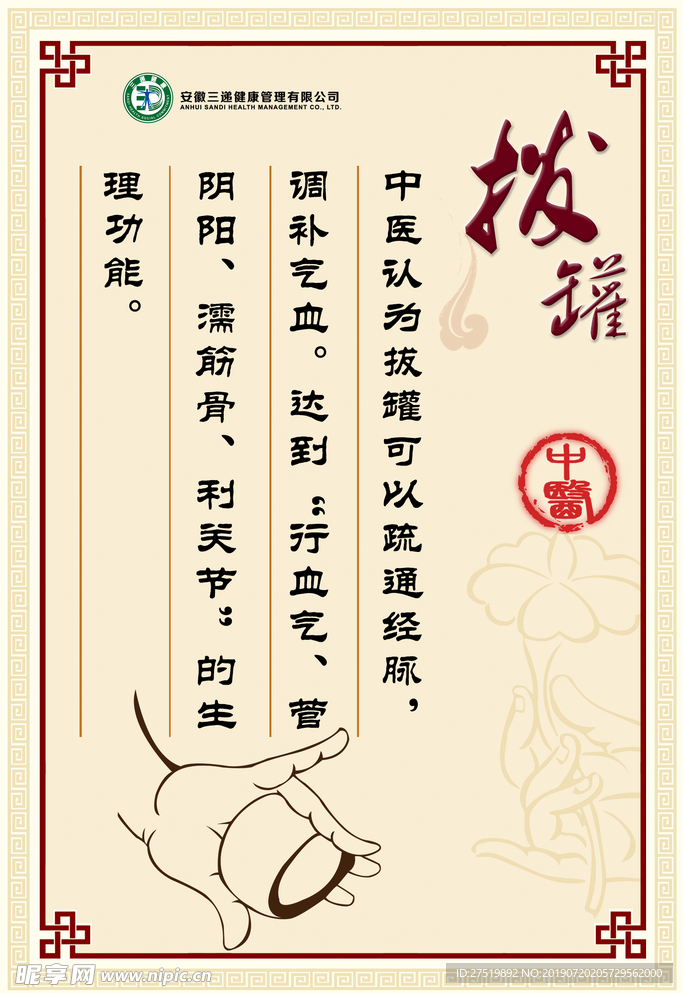 安徽三递健康管理有限公司
ANHUI SANDI HEALTH MANAGEMENT CO., LTD.
拔罐
中醫
中医认为拔罐可以疏通经脉，
调补气血。达到“行血气、营
阴阳、濡筋骨、利关节”的生
理功能。
昵享网 www.nipic.cn
ID:27519892 NO:20190720205729562000